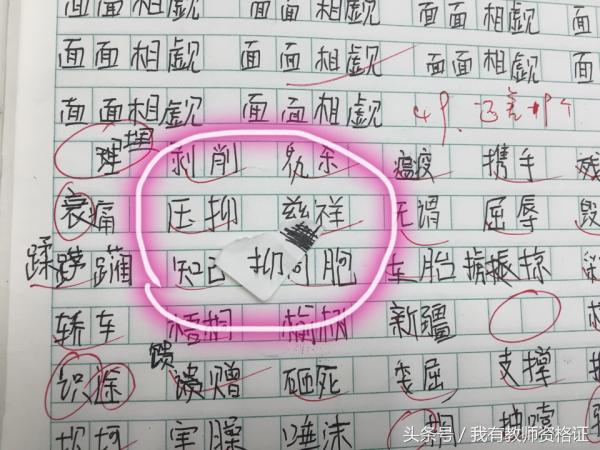 面面相觑 面面相觑 面面相
面面相觑 面面相觑 面面相觑 面
面面相觑 面面相觑
埋 剥削 瘟疫 携手
哀痛 压抑 慈祥 无谓 屈辱 毁
蹂躏 知己 抑 同胞 车胎 振 掠
轿车 梧桐 榆树 新疆
馈
识途 馈赠 砸死 委屈 支撑
坎坷 害臊 唾沫
头条号 / 我有教师资格证